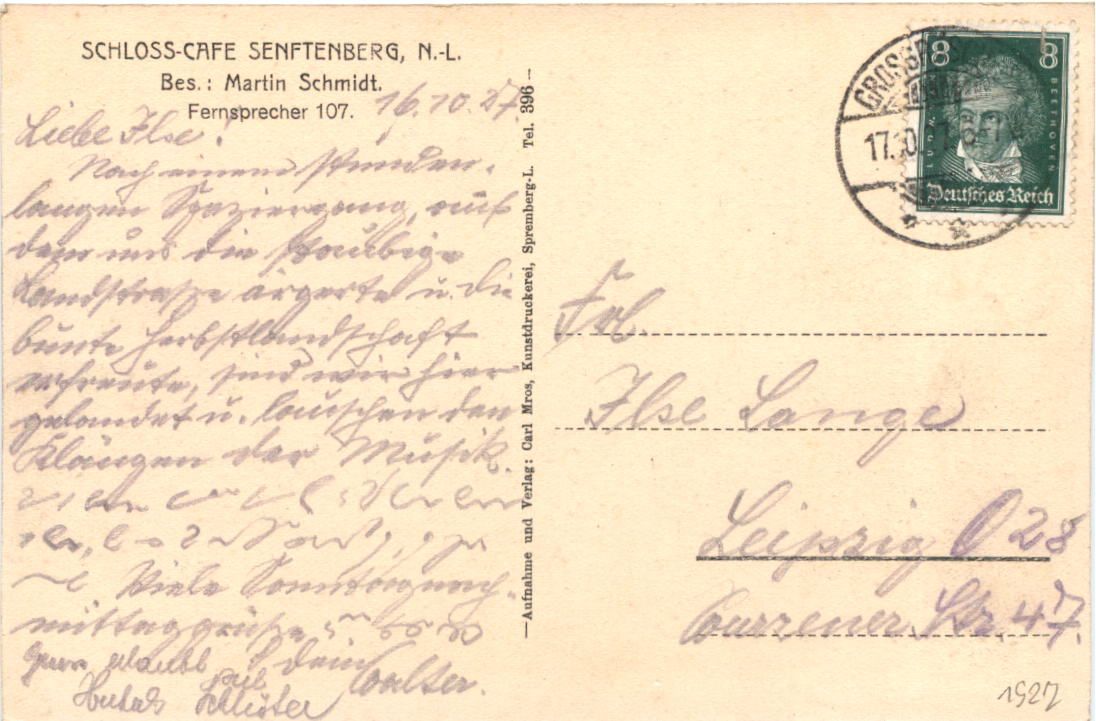 SCHLOSS-CAFE SENFTENBERG, N.-L.
Bes.: Martin Schmidt.
Fernsprecher 107.
16.10.27.
Liebe Ilse!
Nach einem stunden-
langen Spaziergang, auf
dem uns die staubige
Landstraße ärgerte u. die
bunte Herbstlandschaft
erfreute, sind wir hier
gelandet u. lauschen den
Klängen der Musik.
Viele Sonntagnach-
mittaggrüße
Dein
Walter.
—Aufnahme und Verlag: Carl Mros, Kunstdruckerei, Spremberg-L. Tel. 396—
GROSS
17.10.27.8
8 8
LUDW. V. BEETHOVEN
Deutsches Reich
Frl.
Ilse Lange
Leipzig O 28
Wurzener Str. 47.
1927